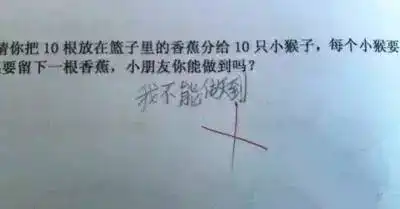 请你把 10 根放在篮子里的香蕉分给 10 只小猴子，每个小猴要
要留下一根香蕉，小朋友你能做到吗？
我不能做到